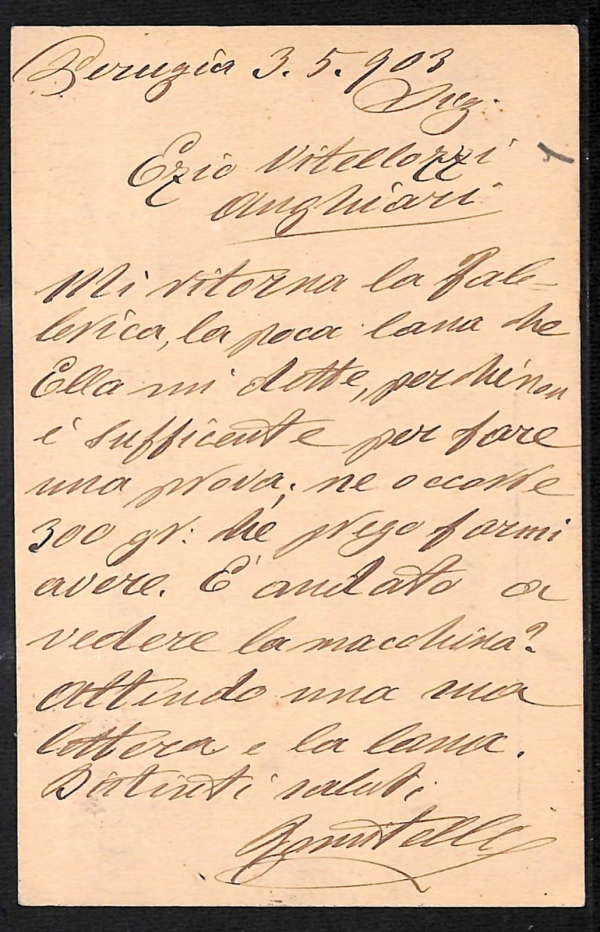 Perugia 3.5.903
Sig.
Ezio Vitellozzi
Anghiari
Mi ritorna la Fab-
brica, la poca lana che
Ella mi dette, perchè non
è sufficente per fare
una prova; ne occorre
300 gr: che prego farmi
avere. È andato a
vedere la macchina?
Attendo una sua
lettera e la lana.
Distinti saluti